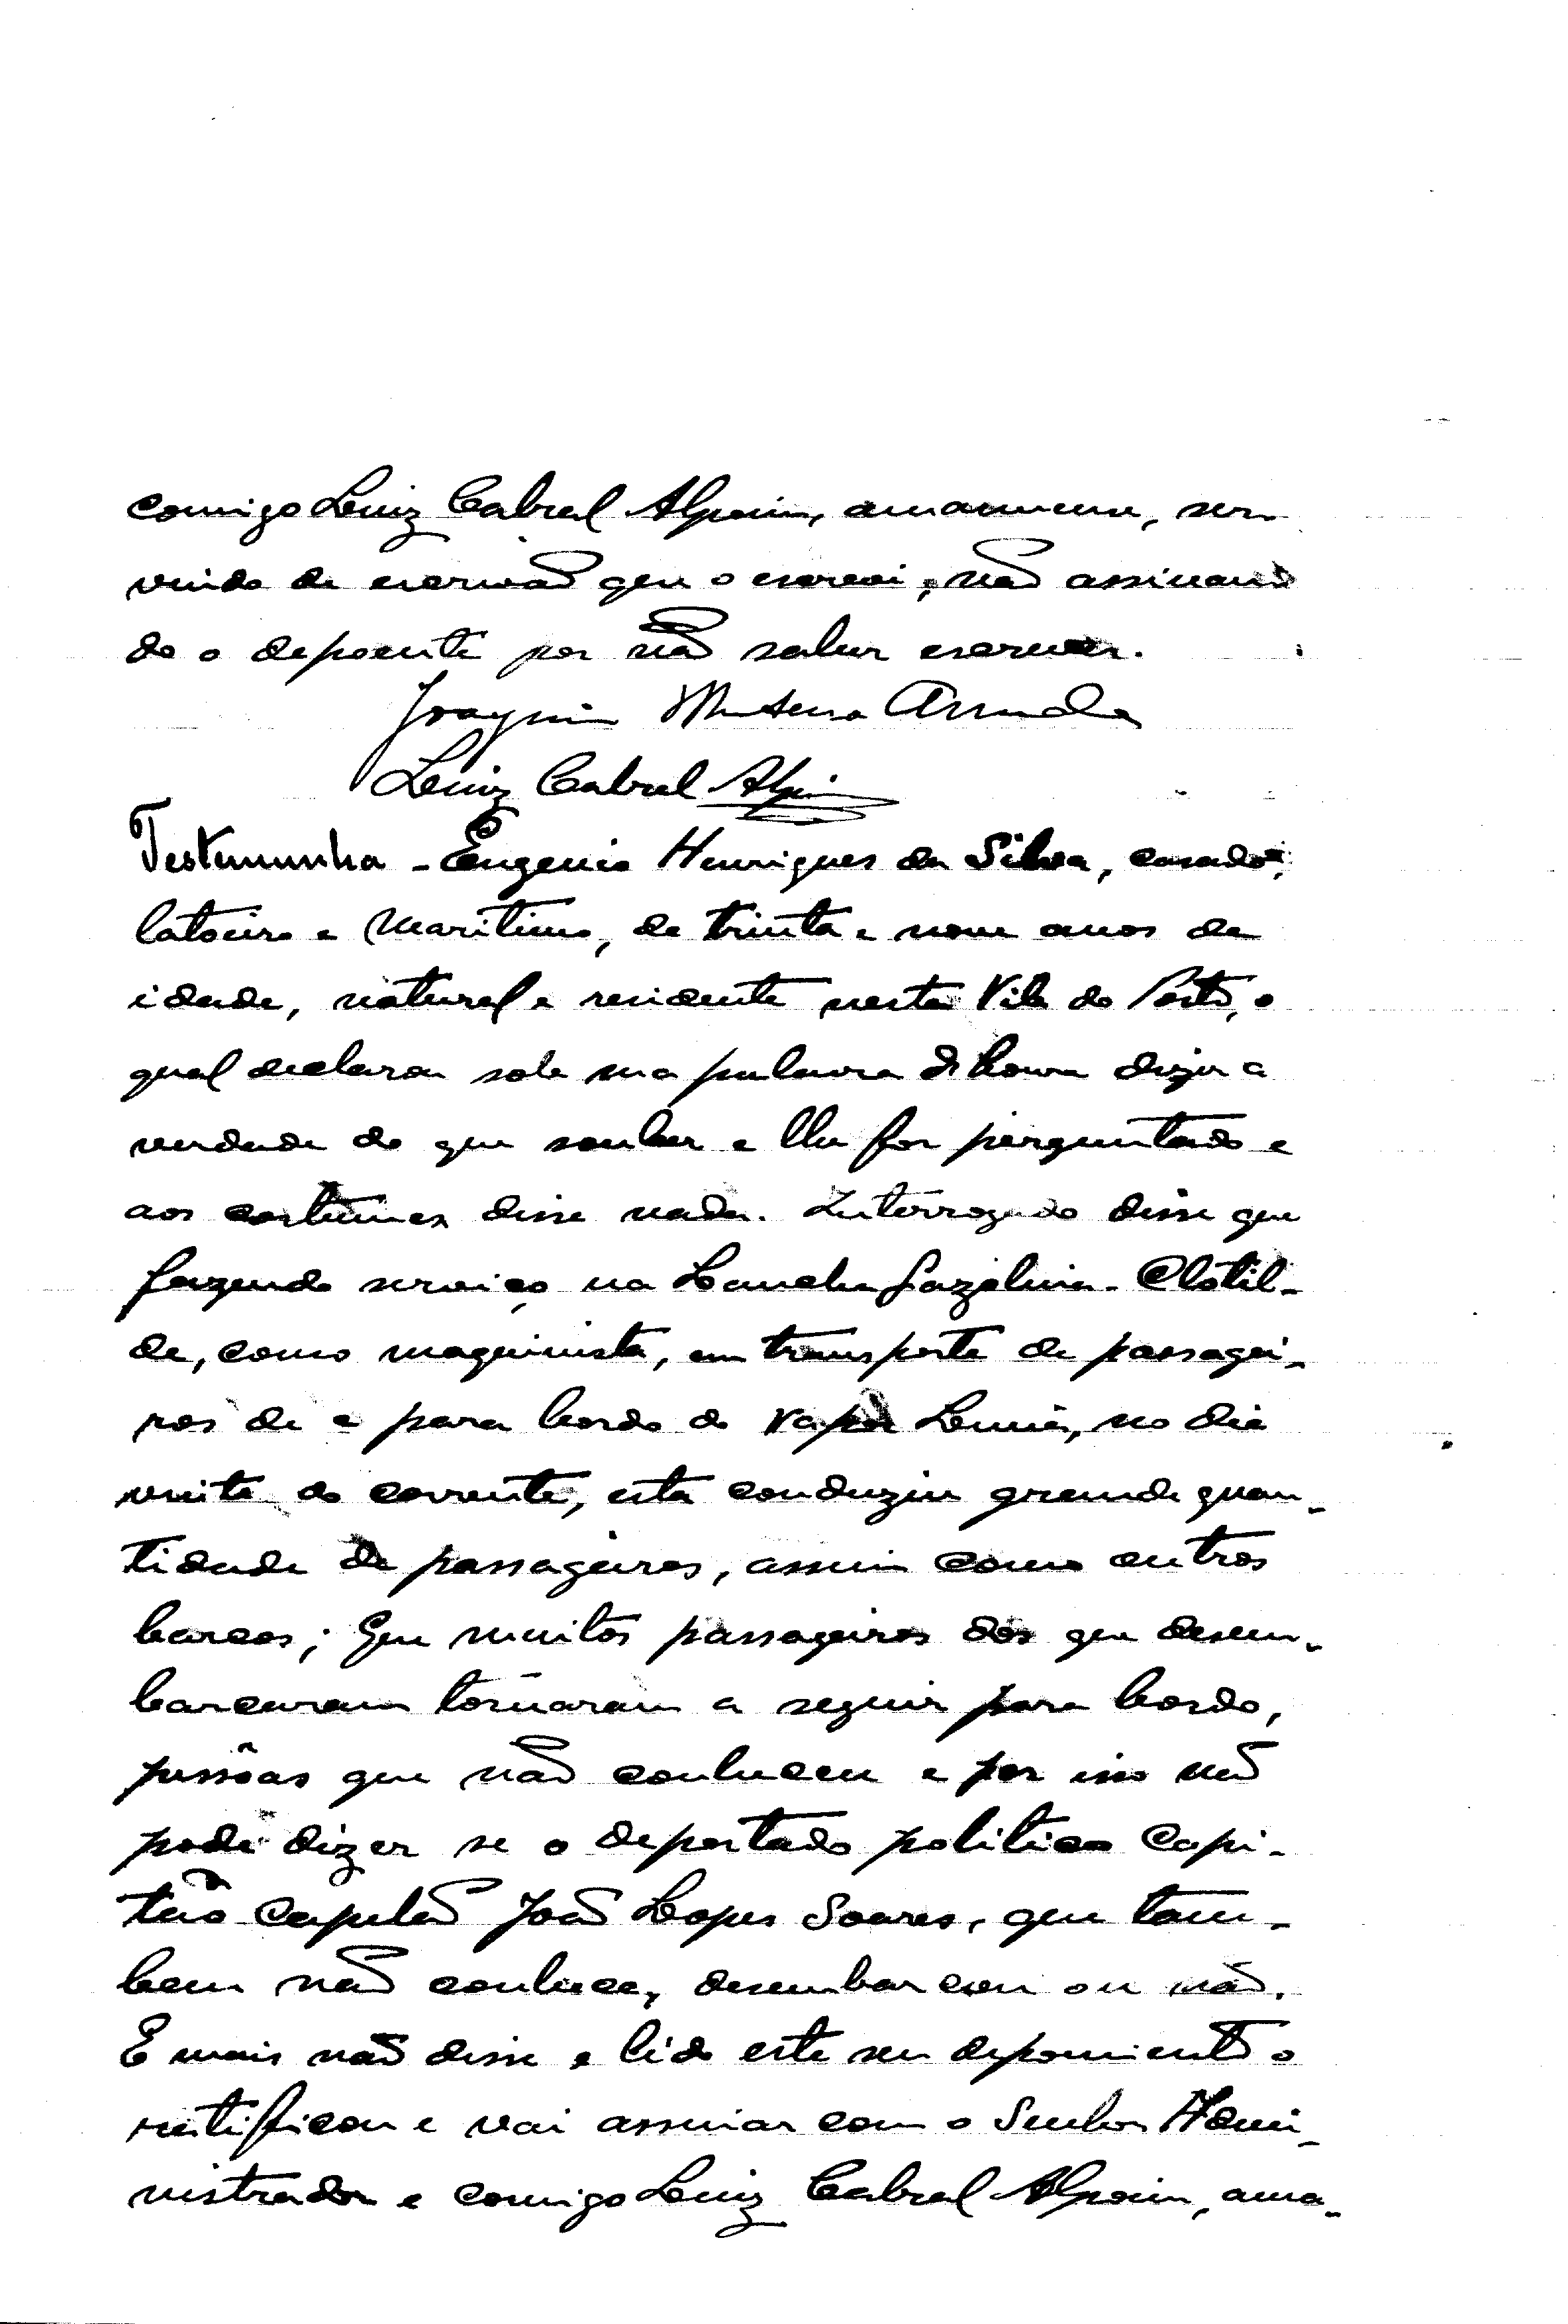 comigo Luiz Cabral Alpoim, amanuense, ser-
vindo de escrivão que o escrevi, não assinan
do o depoente por não saber escrever.
Joaquim Monteiro Arruda
Luiz Cabral Alpoim
Testemunha - Eugenio Henriques da Silva, casado,
latoeiro e maritimo, de trinta e nove anos de
idade, natural e residente nesta Vila do Porto, o
qual declarou sob sua palavra de honra dizer a
verdade do que souber e lhe fôr perguntado e
aos costumes disse nada. Interrogado disse que
fazendo serviço na Lancha Gazolina - Clotil-
de, como maquinista, em transporte de passagei-
ros de e para bordo do vapor Lima, no dia
vinte do corrente, esta conduziu grande quan-
tidade de passageiros, assim como outros
barcos; Que muitos passageiros dos que desem-
barcaram tornaram a seguir para bordo,
pessôas que não conheceu e por isso não
pode dizer se o deportado politico Capi-
tão Capelão João Lopes Soares, que tam-
bem não conhece, desembarcou ou não.
E mais não disse e lido este seu depoimento o
ratificou e vai assinar com o Senhor Admi-
nistrador e comigo Luiz Cabral Alpoim, ama-